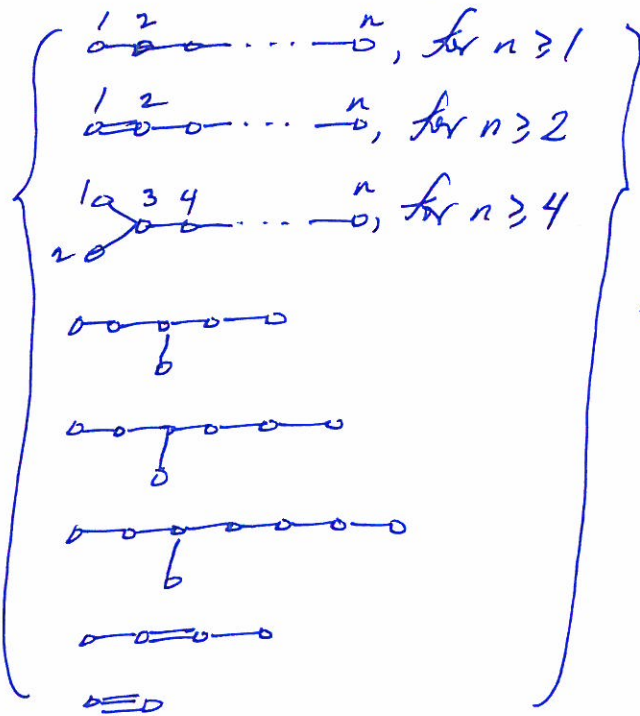 1 2 n, for n ≥ 1
1 2 n, for n ≥ 2
1 3 4 n, for n ≥ 4
2